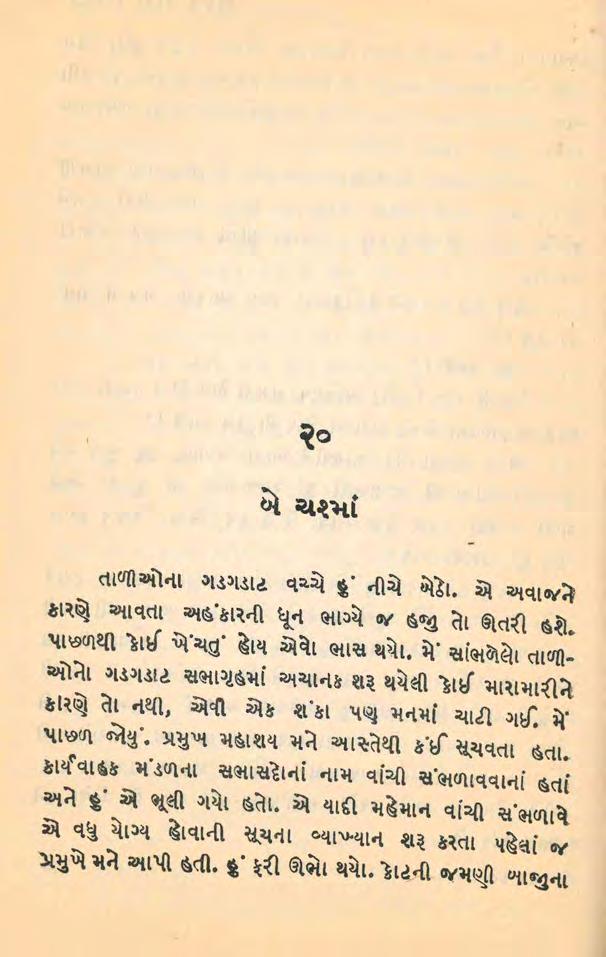 ૨૦
બે ચશ્માં
તાળીઓના ગડગડાટ વચ્ચે હું નીચે બેઠો. એ અવાજને
કારણે આવતા અહંકારની ધૂન ભાગ્યે જ હજી તો ઊતરી હશે.
પાછળથી કોઈ ખેંચતું હોય એવો ભાસ થયો. મેં સાંભળેલો તાળી-
ઓનો ગડગડાટ સભાગૃહમાં અચાનક શરૂ થયેલી કોઈ મારામારીને
કારણે તો નથી, એવી એક શંકા પણ મનમાં ચાટી ગઈ. મેં
પાછળ જોયું. પ્રમુખ મહાશય મને આસ્તેથી કંઈ સૂચવતા હતા.
કાર્યવાહક મંડળના સભાસદોનાં નામ વાંચી સંભળાવવાનાં હતાં
અને હું એ ભૂલી ગયો હતો. એ યાદી મહેમાન વાંચી સંભળાવે
એ વધુ યોગ્ય હોવાની સૂચના વ્યાખ્યાન શરૂ કરતા પહેલાં જ
પ્રમુખે મને આપી હતી. હું ફરી ઊભો થયો. કોટની જમણી બાજુના